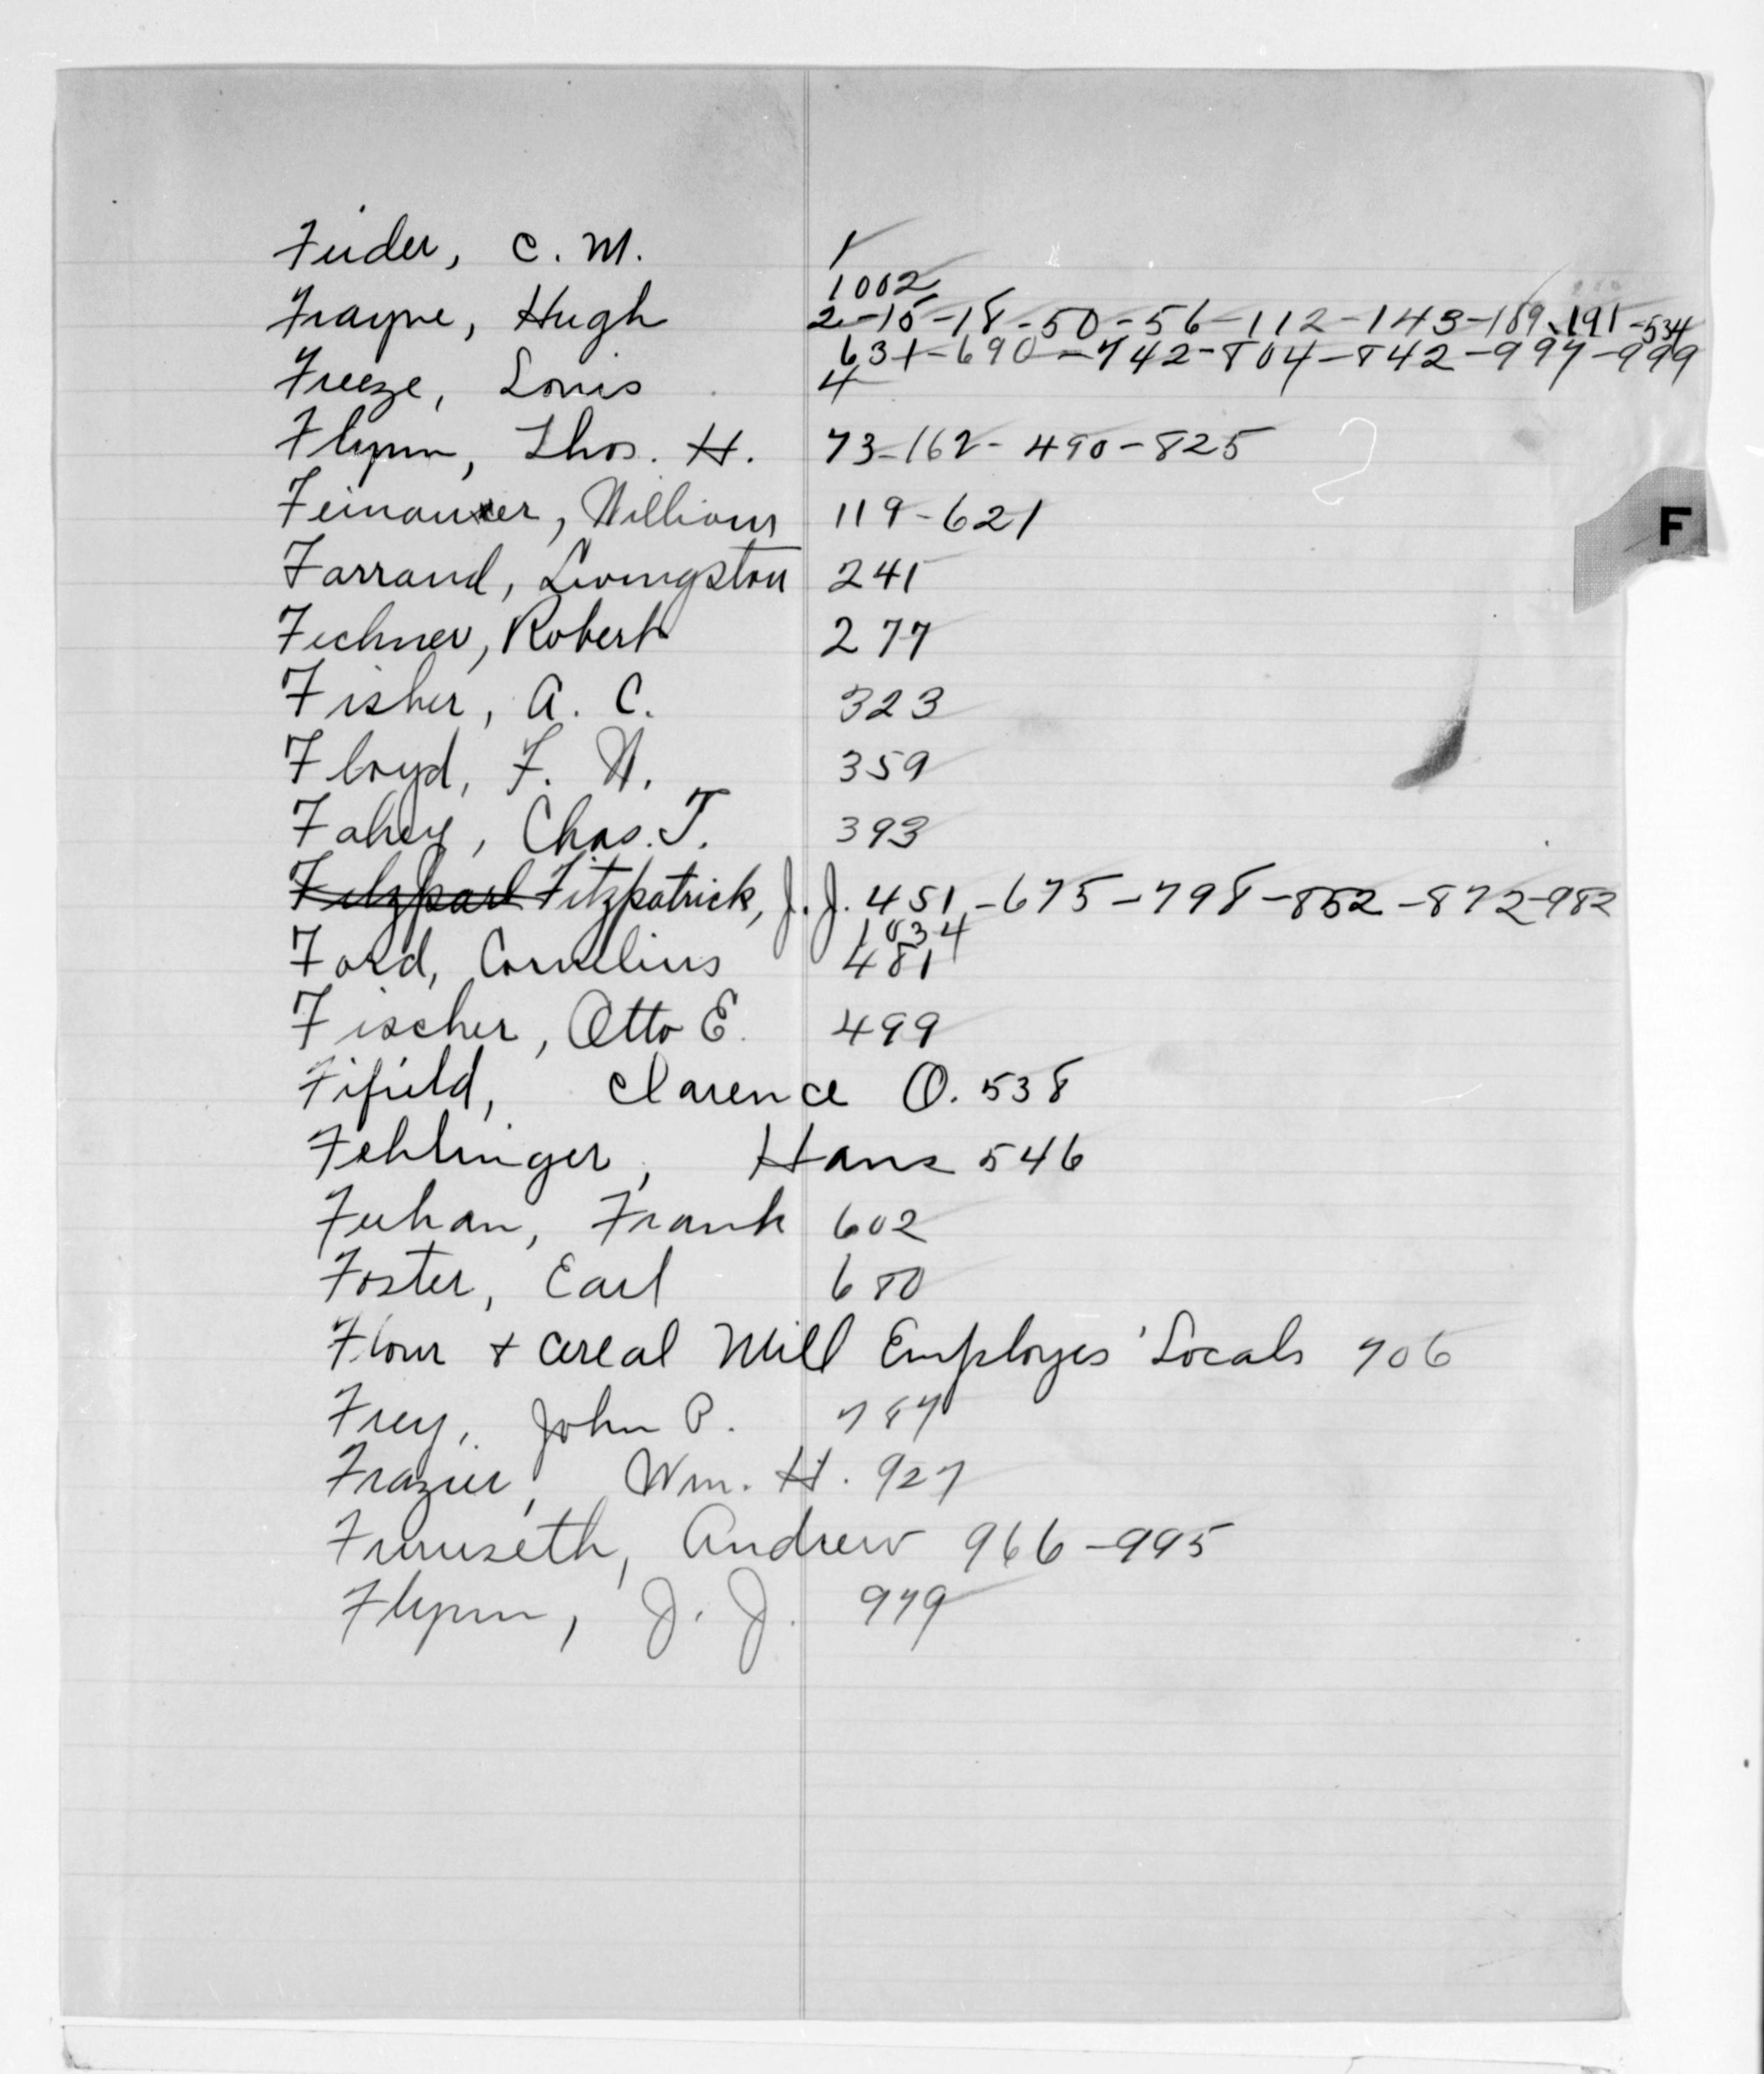 Feider, C. M. 1
1002
Frayne, Hugh 2-15-18-50-56-112-143-189-191-534
631-690-742-804-842-997-999
Freeze, Louis 4
Flynn, Thos. H. 73-162-490-825
F
William 119-621
Farrand, Livingston 241
Fechner, Robert 277
Fisher, A. C. 323
Floyd, F. W. 359
Fahey, Chas. T. 393
Fitzpatrick, J. J. 451-675-798-852-872-982
1034
Ford, Cornelius 481
Fischer, Otto E. 499
Fifield, Clarence O. 538
Fehlinger, Hans 546
Feehan, Frank 602
Foster, Earl 680
Flour & Cereal Mill Employes' Locals 706
Frey, John P. 787
Frazier, Wm. H. 927
Furuseth, Andrew 966-995
Flynn, J. J. 979